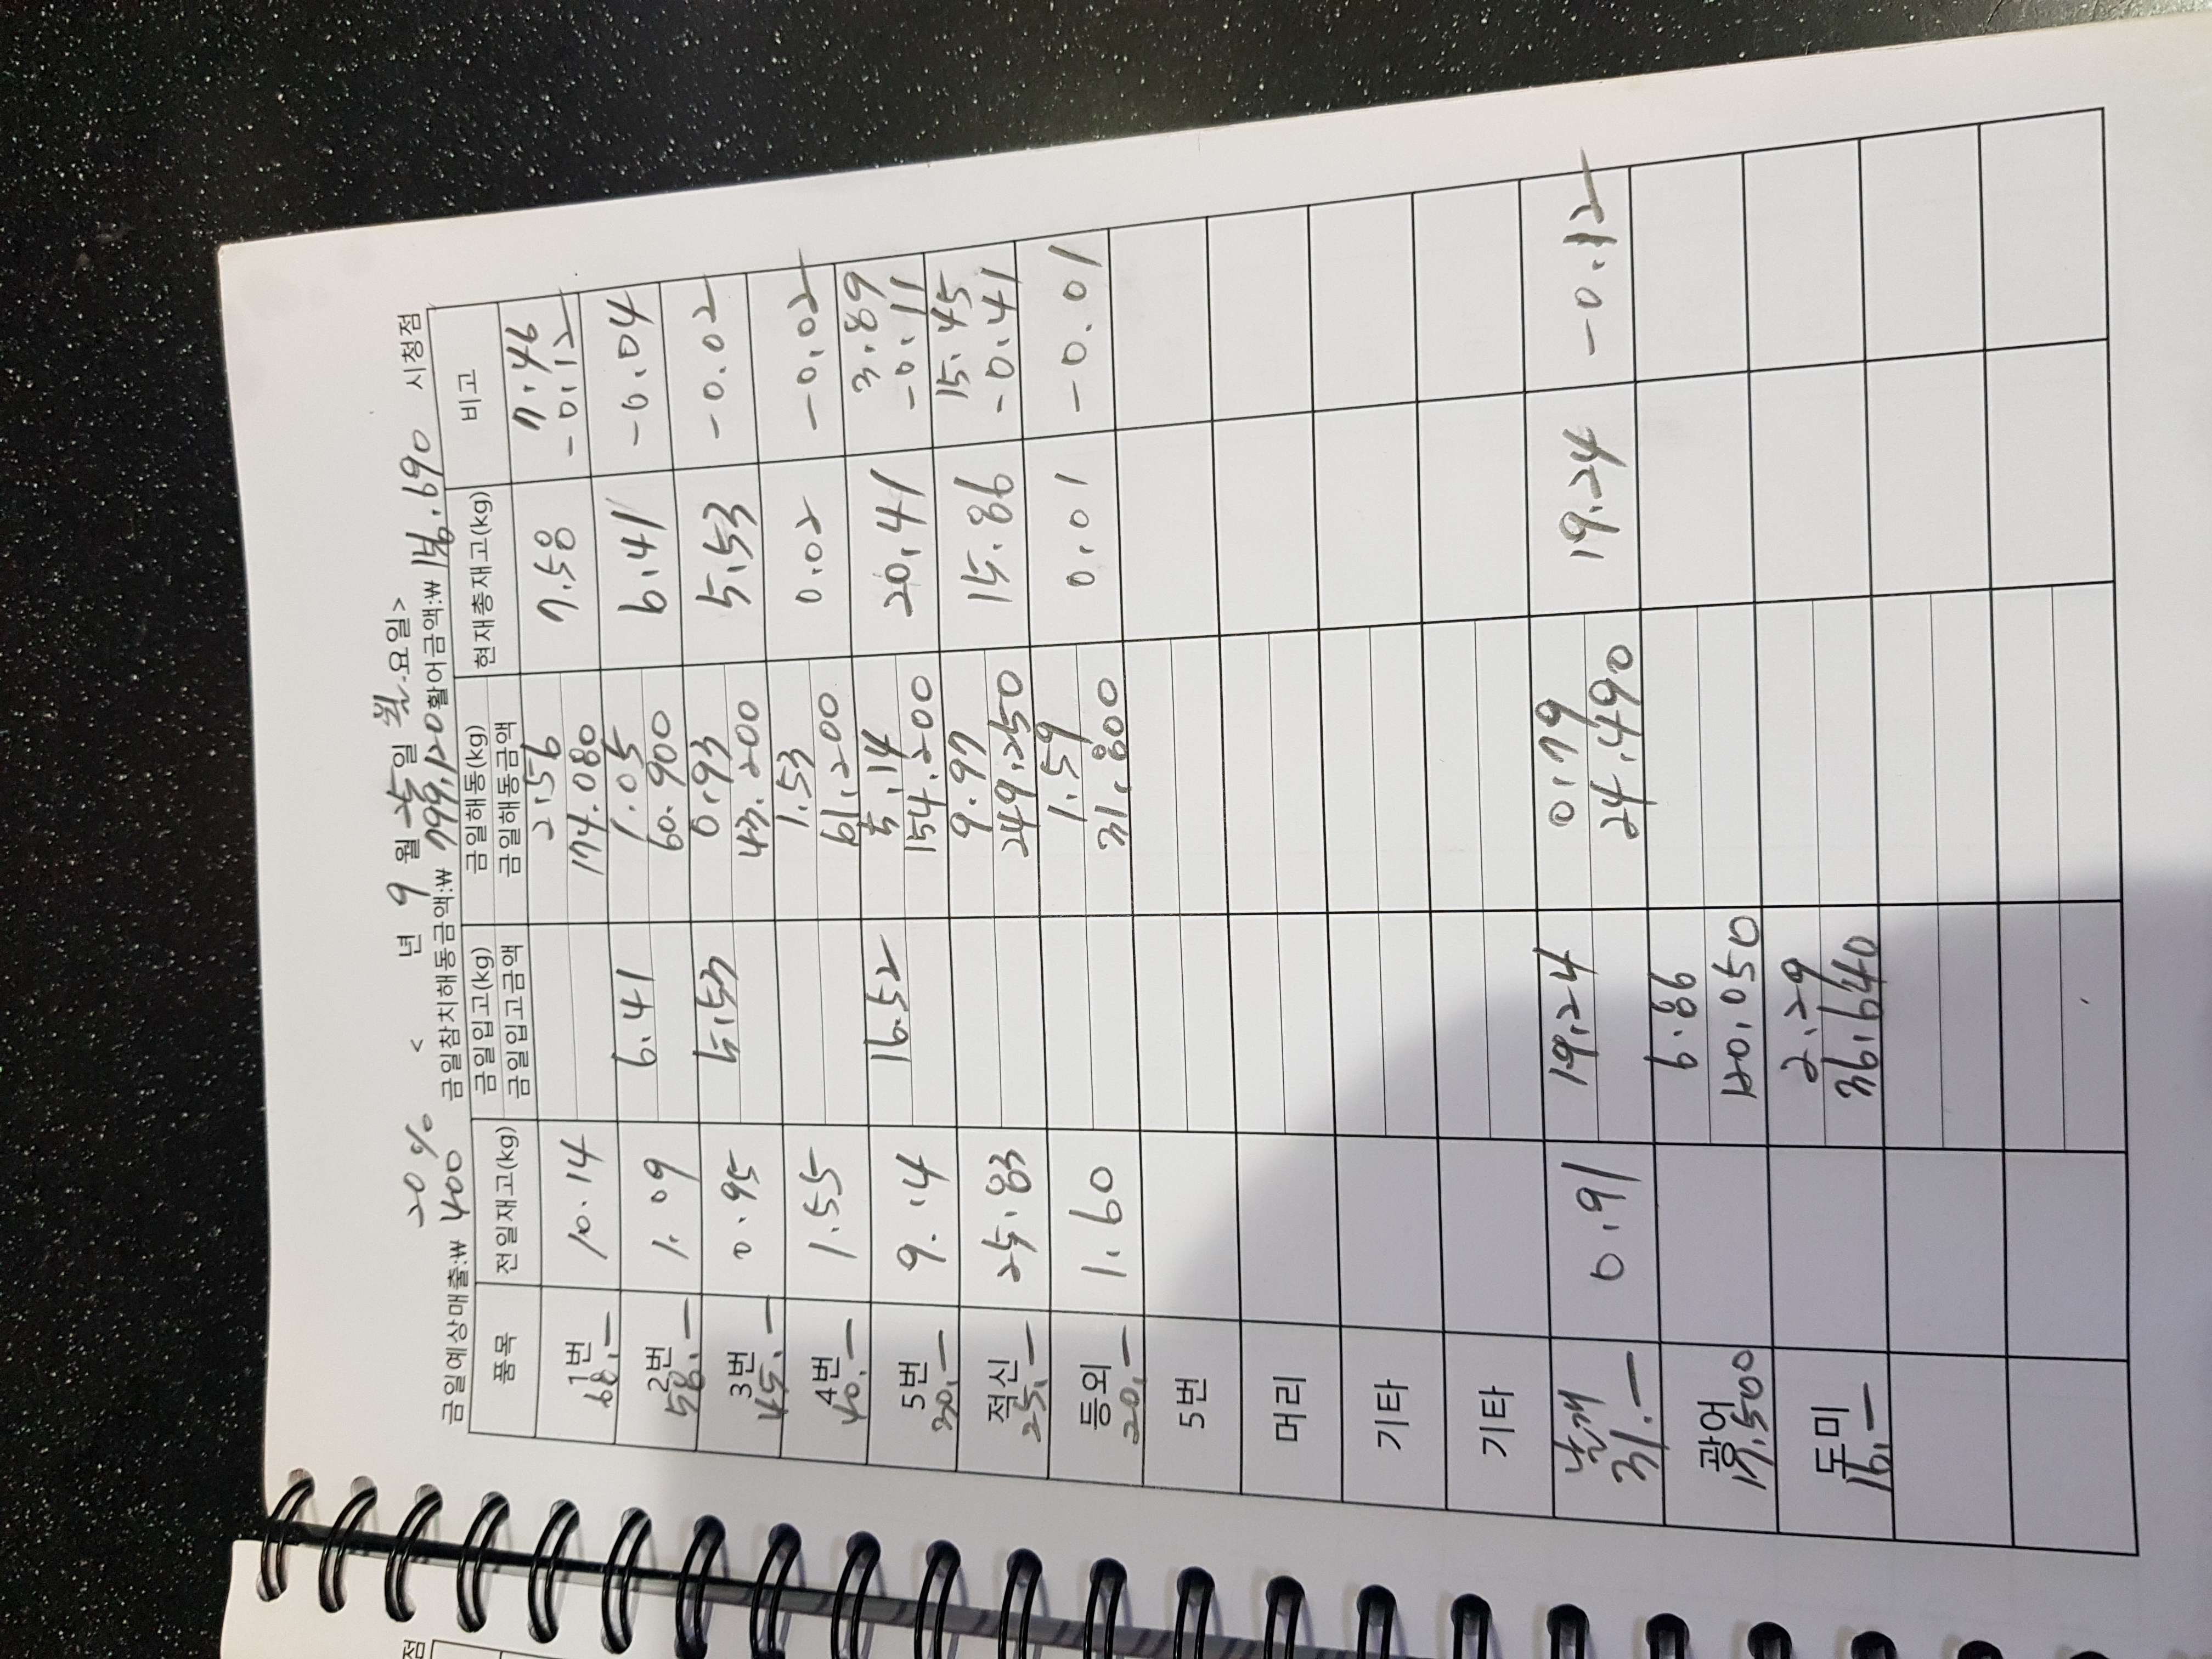 20% < 년 9 월 25일 월요일>
금일예상매출:₩ 400 금일참치해동금액:₩ 799.120 활어금액:₩ 156.690 시청점
품목 전일재고(kg) 금일입고(kg) 금일해동(kg) 현재총재고(kg) 비고
금일입고금액 금일해동금액
1번 10.14 2.56 7.58 7.46
68.- 174.080 -0.12
2번 1.09 6.41 1.05 6.41 -0.04
58.- 60.900
3번 0.95 5.53 0.93 5.53 -0.02
45.- 43.200
4번 1.55 1.53 0.02 -0.02
40.- 61.200
5번 9.14 16.52 5.14 20.41 3.89
30.- 154.200 -0.11
적신 25.83 9.97 15.86 15.45
25.- 249.250 -0.41
등외 1.60 1.59 0.01 -0.01
20.- 31.800
5번
머리
기타
기타
날개 0.91 19.24 0.79 19.24 -0.12
31.- 24.490
광어 6.86
17.500 120.050
도미 2.29
16.- 36.640
점